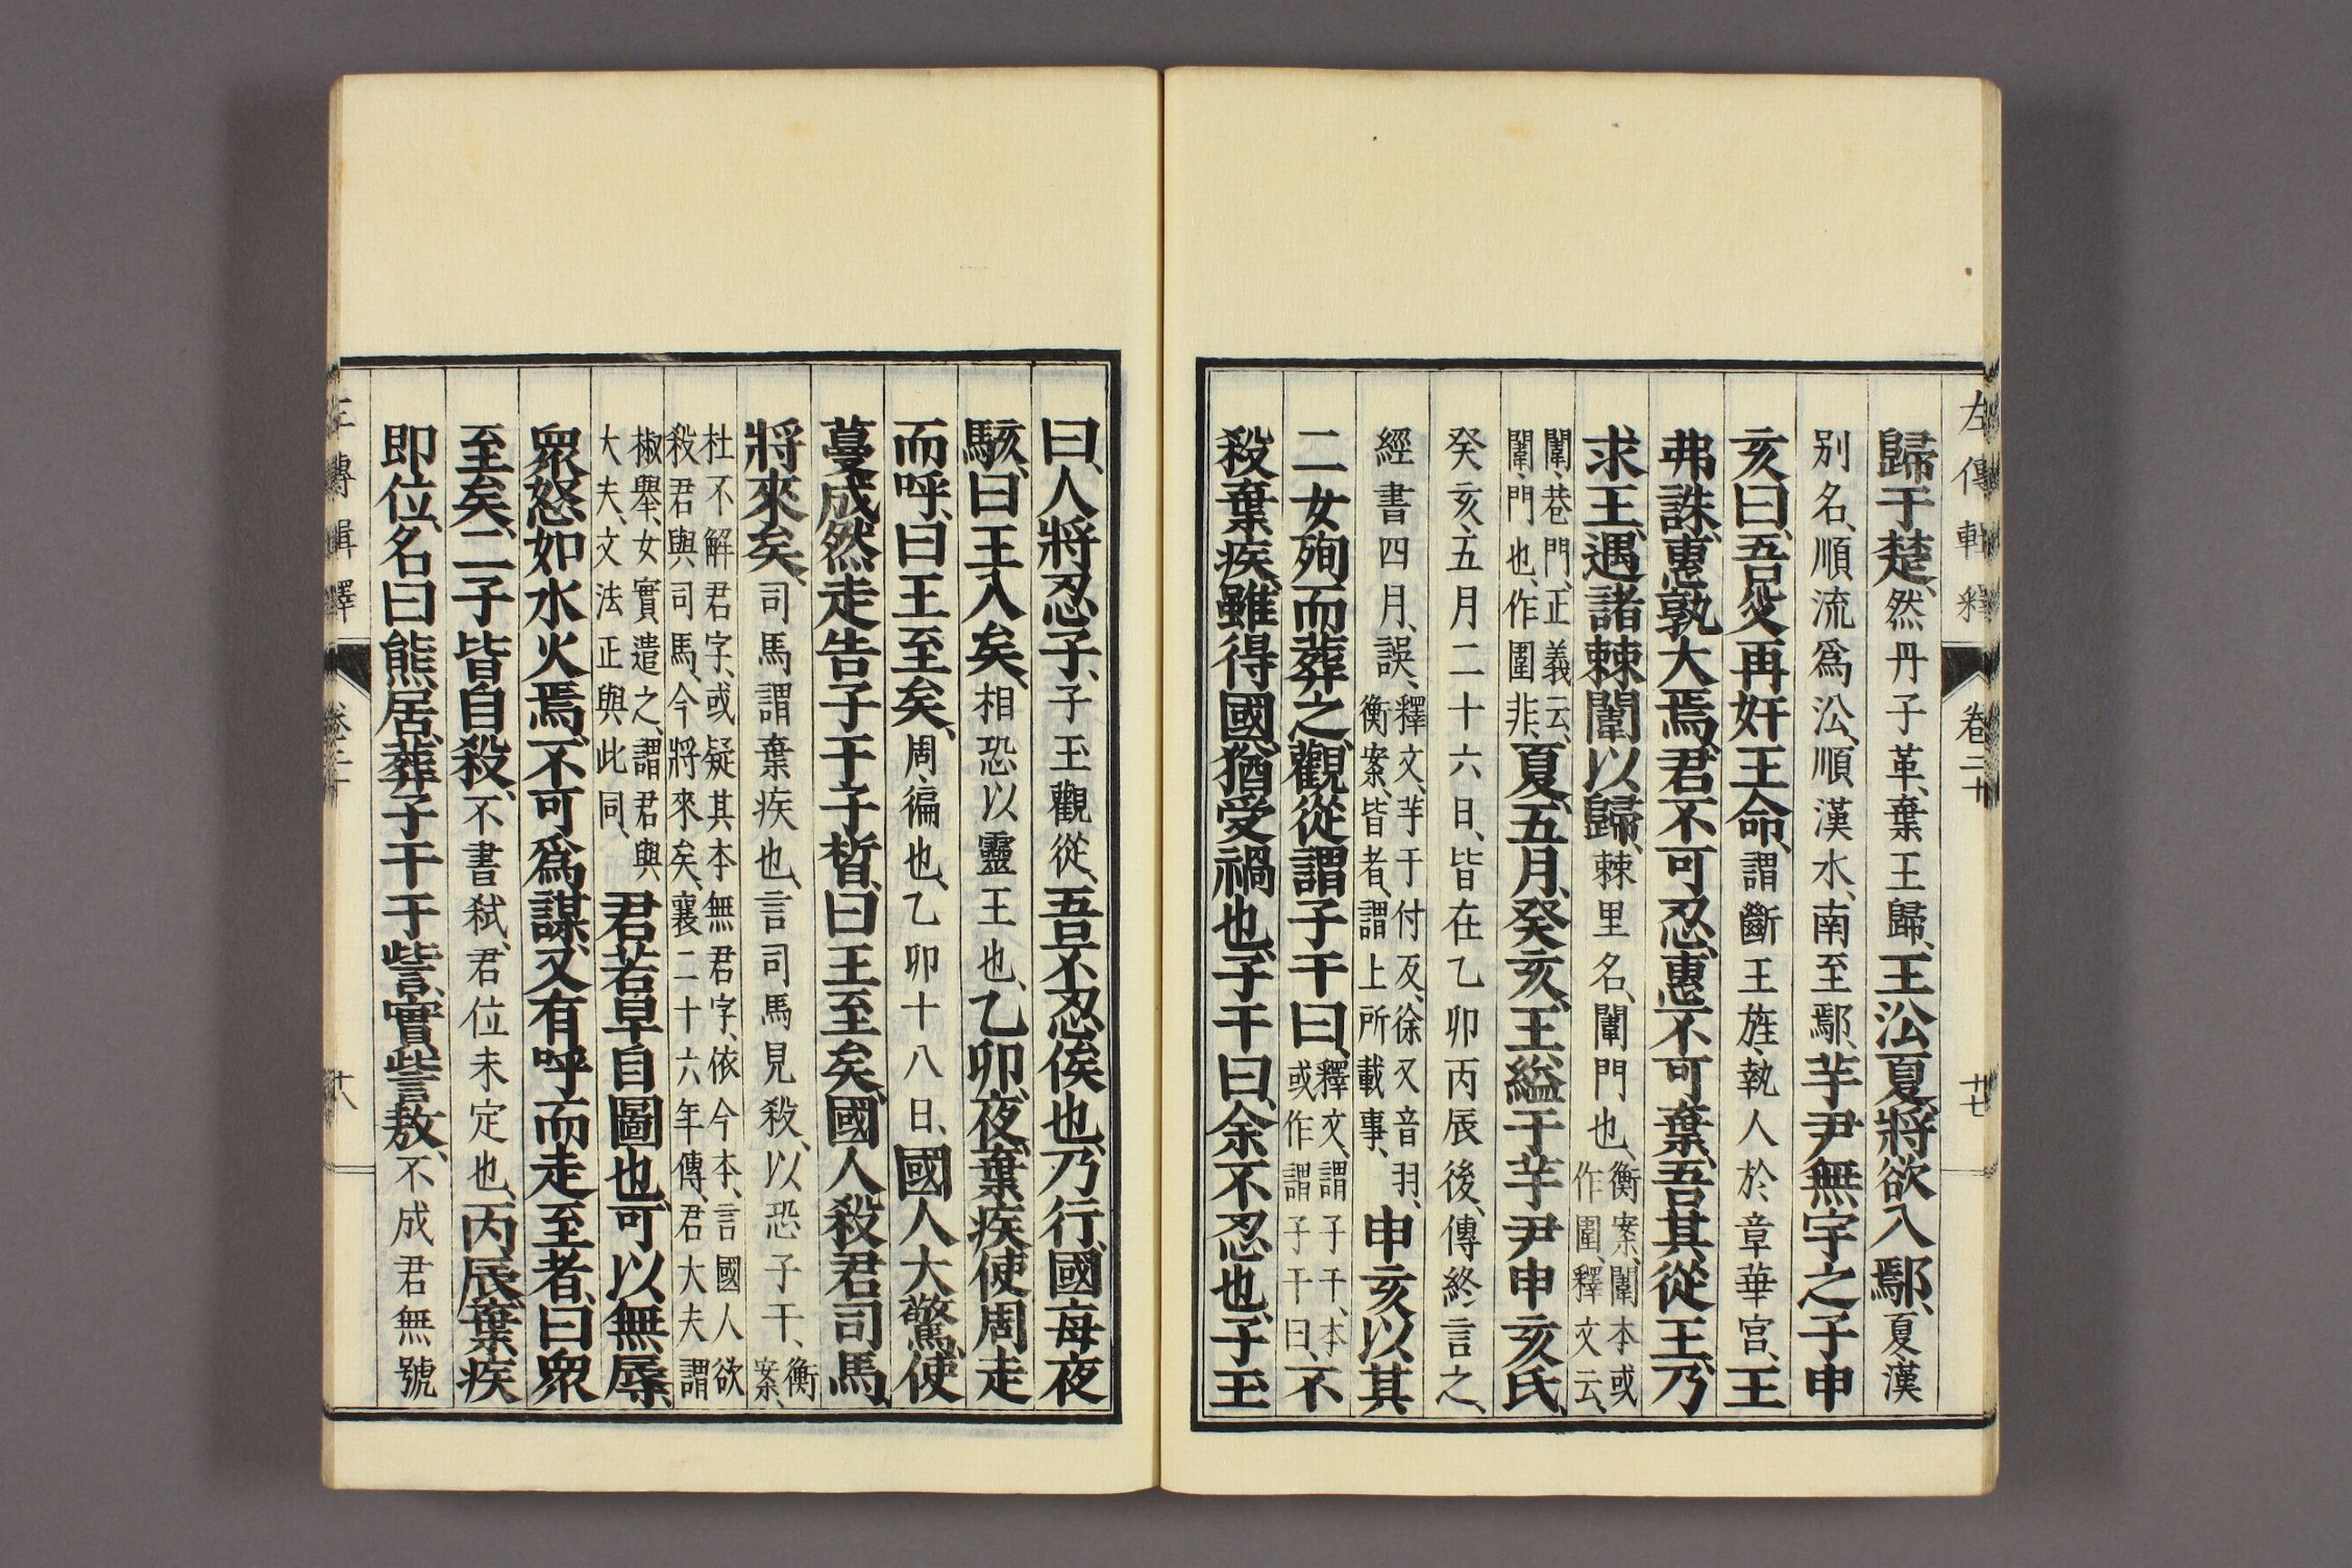 左傳輯釋 卷二十 十七
歸于楚、然丹子革、棄王歸、王沿夏、將欲入鄢、夏漢
別名、順流爲沿、順漢水、南至鄢、芋尹無宇之子申
亥曰、吾父再奸王命、謂斷王旌、執人於章華宮、王
弗誅、惠孰大焉、君不可忍、惠不可棄、吾其從王、乃
求王、遇諸棘闈以歸、棘里名、闈門也、衡案、闈本或
作圍、釋文云、
闈、巷門、正義云、
闈、門也、作圍非、夏、五月、癸亥、王縊于芋尹申亥氏、
癸亥、五月二十六日、皆在乙卯丙辰後、傳終言之、
經書四月、誤、釋文、芋于付反、徐又音羽、
衡案、皆者、謂上所載事、申亥以其
二女殉而葬之、觀從謂子干曰、釋文、謂子干、本
或作謂子干曰、不
殺棄疾、雖得國、猶受禍也、子干曰、余不忍也、子玉
曰、人將忍子、子玉觀從、吾不忍俟也、乃行、國每夜
駭、曰王入矣、相恐以靈王也、乙卯、夜、棄疾使周走
而呼、曰王至矣、周、徧也、乙卯十八日、國人大驚、使
蔓成然走告子干子皙、曰王至矣、國人殺君司馬、
將來矣、司馬謂棄疾也、言司馬見殺、以恐子干、衡
案、
杜不解君字、或疑其本無君字、依今本、言國人欲
殺君與司馬、今將來矣、襄二十六年傳、君大夫謂
椒舉、女實遣之、謂君與
大夫、文法正與此同、君若早自圖也、可以無辱、
衆怒如水火焉、不可爲謀、又有呼而走至者、曰衆
至矣、二子皆自殺、不書弒、君位未定也、丙辰、棄疾
即位、名曰熊居、葬子干于訾、實訾敖、不成君無號
左傳輯釋 卷二十 十八